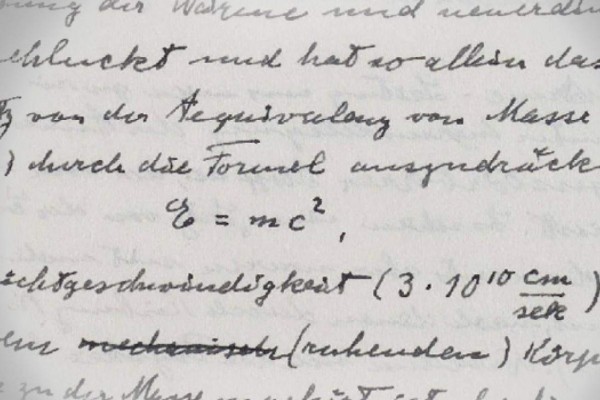 der Wärme und neuerdin
chluckt und hat so allein das
tz von der Aequivalenz von Masse
) durch die Formel auszudrück
E = mc²,
ichtgeschwindigkeit (3 . 10¹⁰ cm/sek)
em mechanisch (ruhenden) Körp
zu der Masse